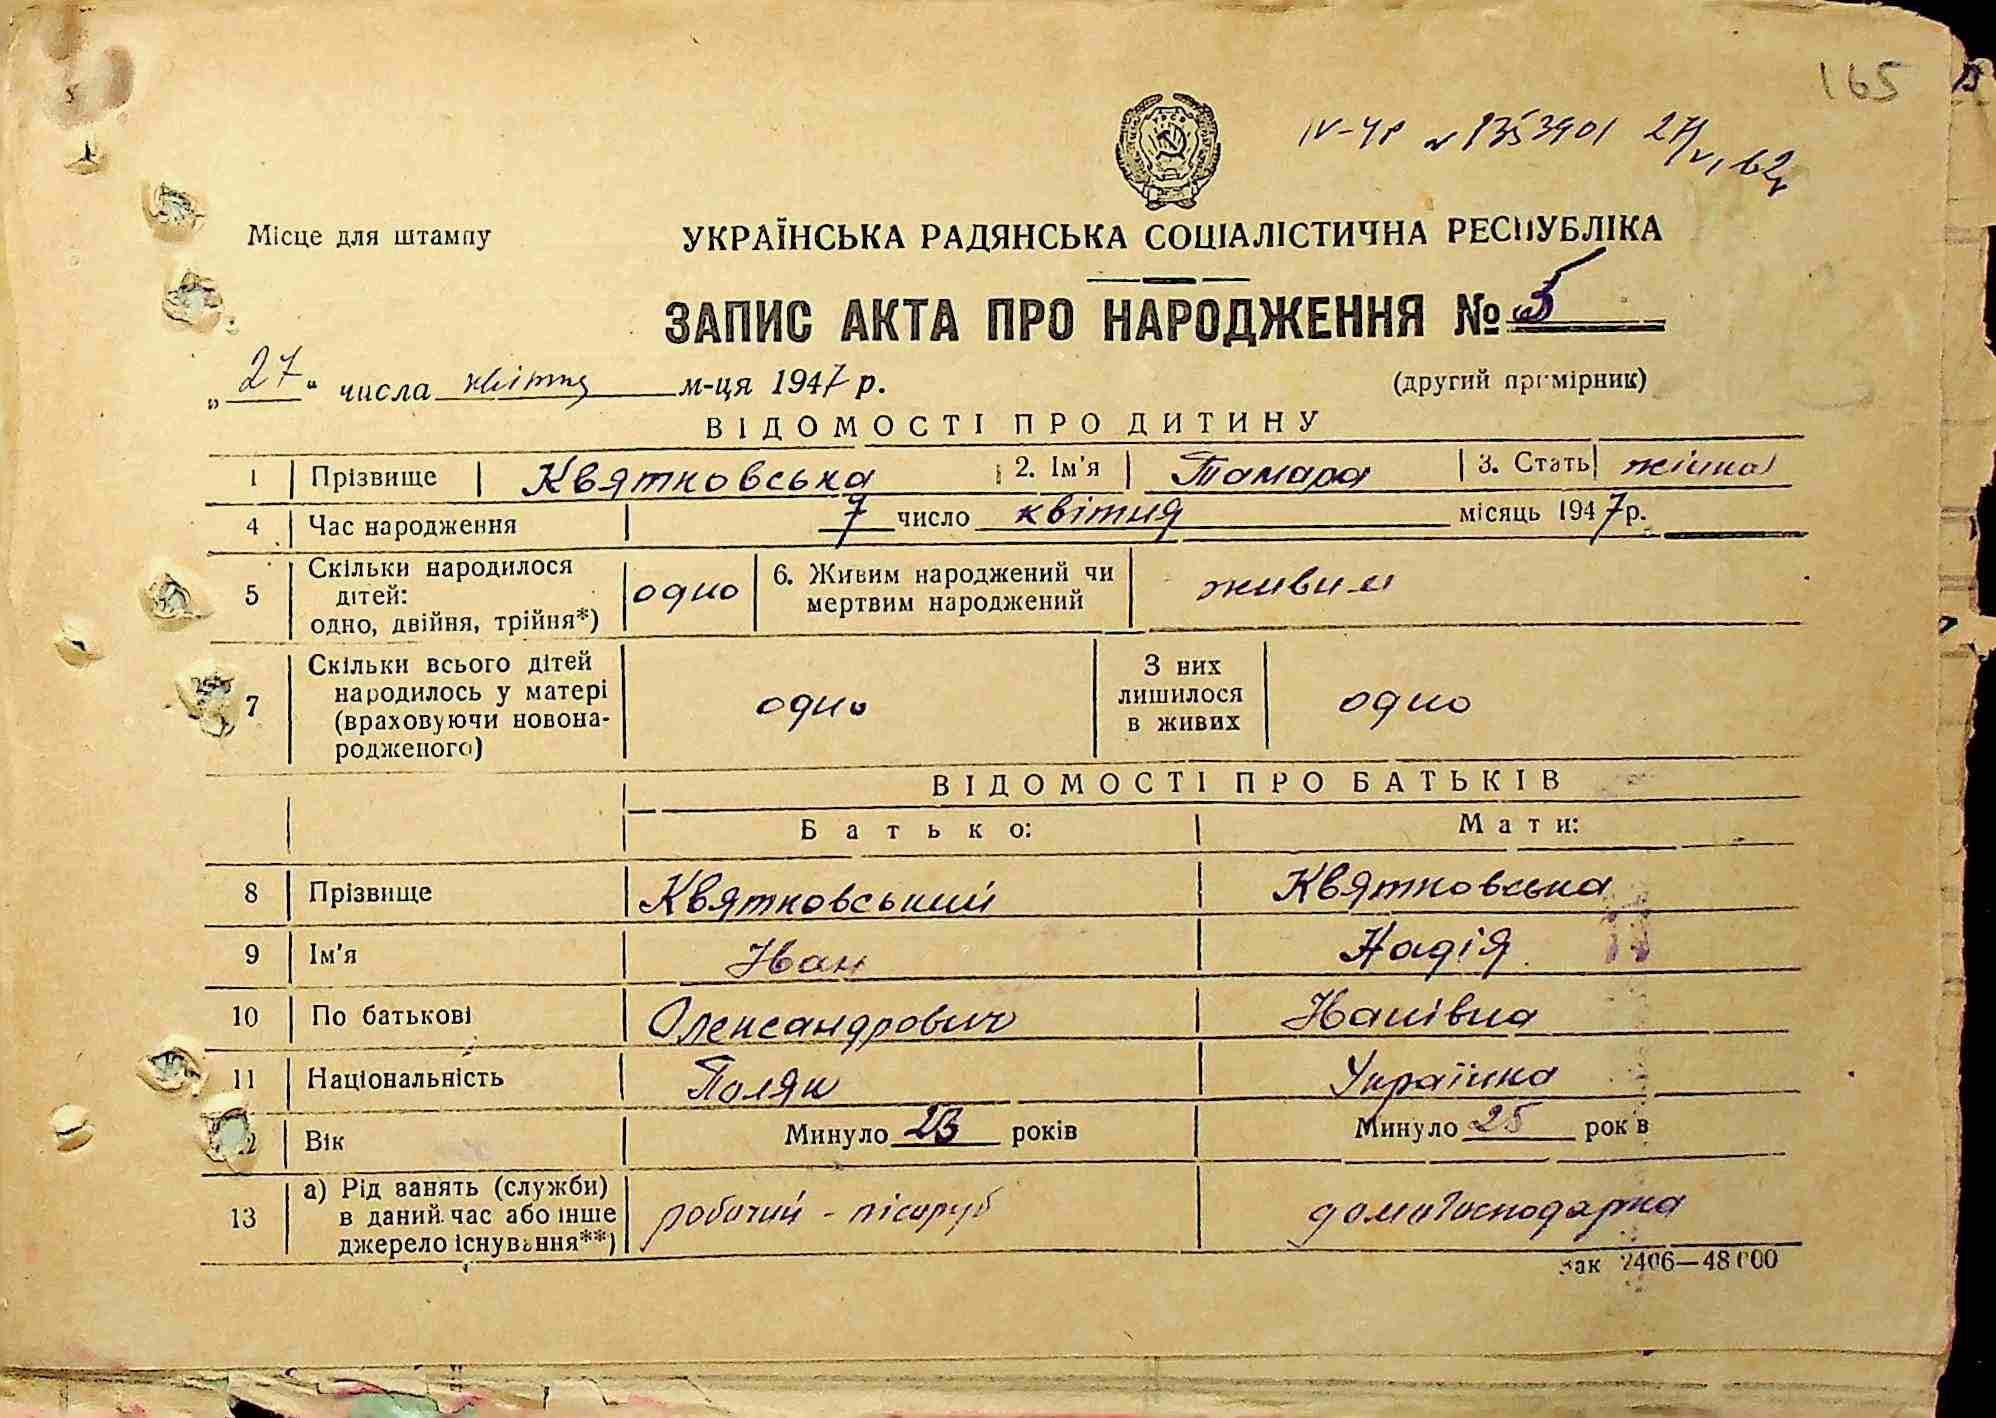 165
IV-УР № 1353901 27/VI 62р
Місце для штампу
УКРАЇНСЬКА РАДЯНСЬКА СОЦІАЛІСТИЧНА РЕСПУБЛІКА
ЗАПИС АКТА ПРО НАРОДЖЕННЯ № 5
„27“ числа квітня м-ця 1947 р.
(другий примірник)
ВІДОМОСТІ ПРО ДИТИНУ
1 Прізвище Квятковська 2. Ім'я Тамара 3. Стать жіноча
4 Час народження 7 число квітня місяць 1947р.
5 Скільки народилося дітей: одно, двійня, трійня*) одно 6. Живим народжений чи мертвим народжений живим
7 Скільки всього дітей народилось у матері (враховуючи новонародженого) одно З них лишилося в живих одно
ВІДОМОСТІ ПРО БАТЬКІВ
Батько: Мати:
8 Прізвище Квятковський Квятковська
9 Ім'я Іван Надія
10 По батькові Олександрович Іванівна
11 Національність Поляк Українка
12 Вік Минуло 23 років Минуло 25 років
13 а) Рід занять (служби) в даний час або інше джерело існування**) робочий - лісоруб домогосподарка
Зак 2406—48000